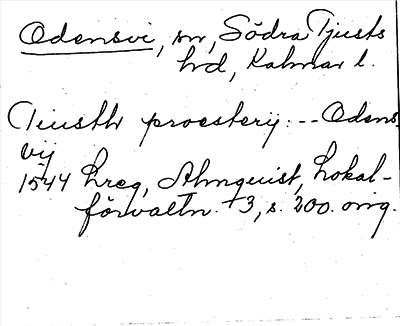 Odensvi, sn, Södra Tjusts
hrd, Kalmar l.
Tiusth proesterij: -- Odens-
vij
1544 hreg, Almquist, Lokal-
förvaltn. +3, s. 200. orig.